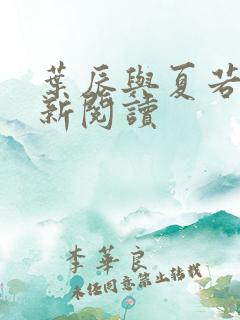 葉辰與夏若
新閱讀
李華良
未经同意禁止转载